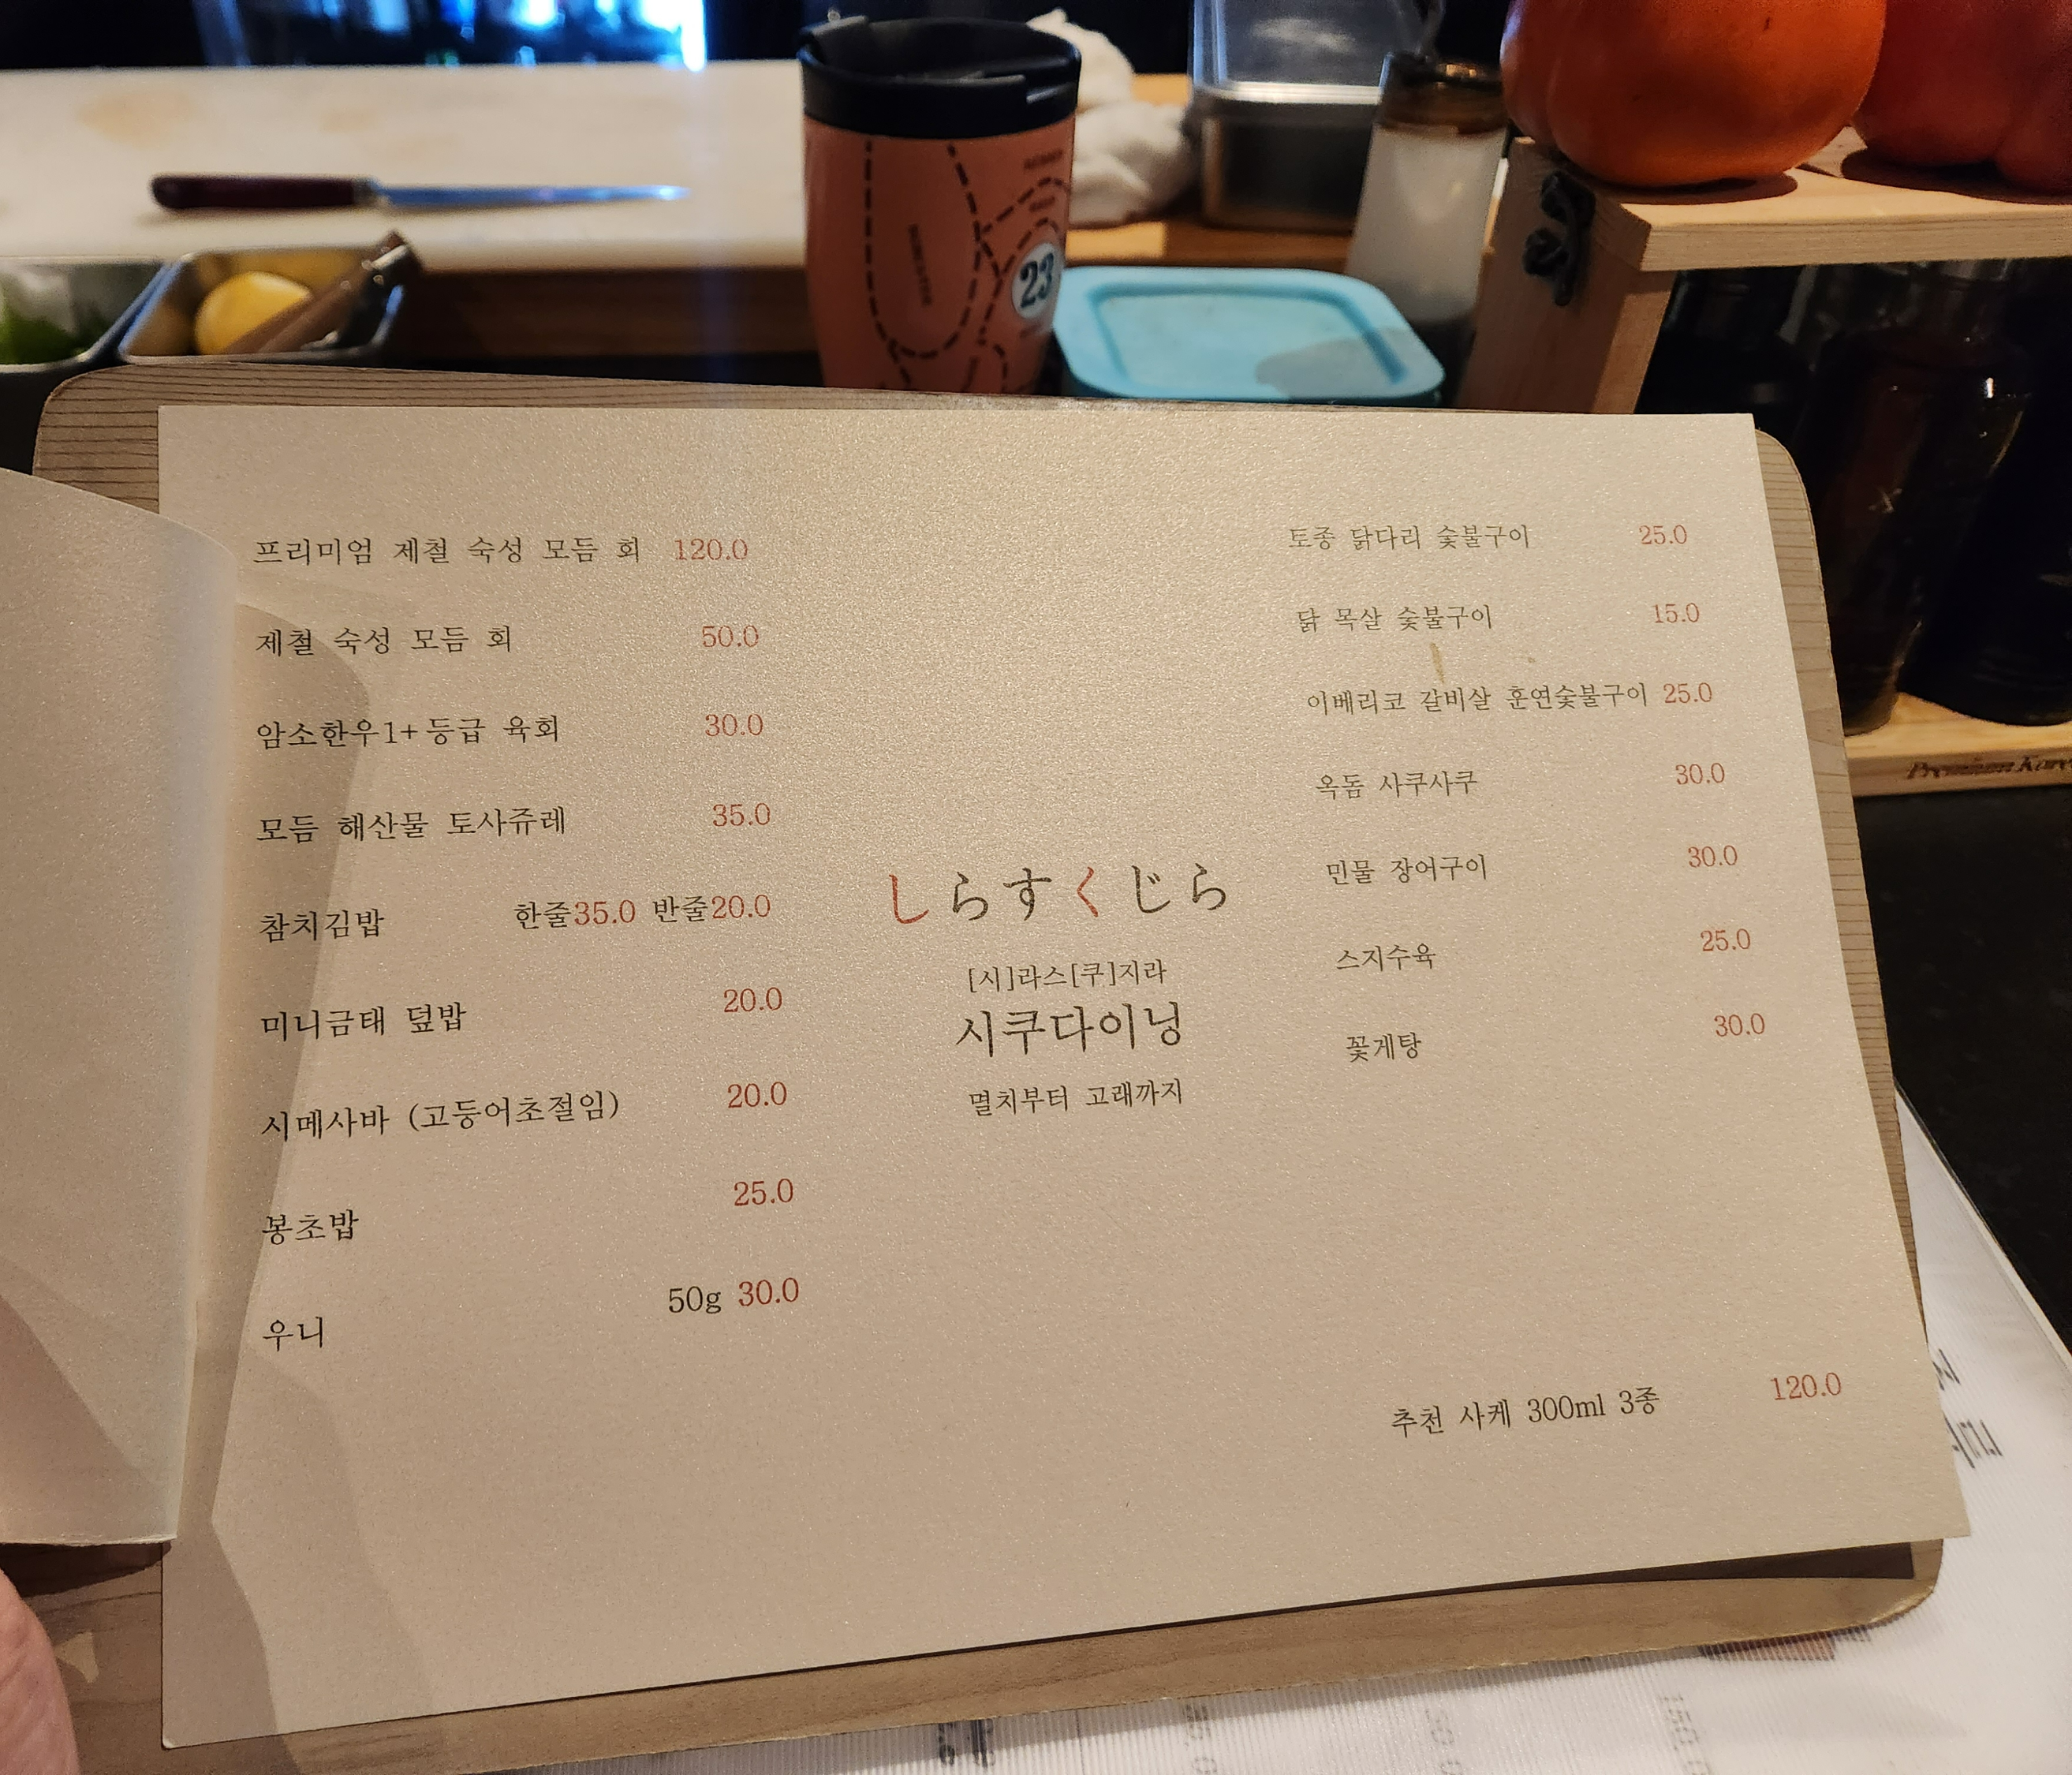 23
프리미엄 제철 숙성 모듬 회 120.0
제철 숙성 모듬 회 50.0
암소한우1+등급 육회 30.0
모듬 해산물 토사쥬레 35.0
참치김밥 한줄35.0 반줄20.0
미니금태 덮밥 20.0
시메사바 (고등어초절임) 20.0
봉초밥 25.0
우니 50g 30.0
しらすくじら
[시]라스[쿠]지라
시쿠다이닝
멸치부터 고래까지
토종 닭다리 숯불구이 25.0
닭 목살 숯불구이 15.0
이베리코 갈비살 훈연숯불구이 25.0
옥돔 사쿠사쿠 30.0
민물 장어구이 30.0
스지수육 25.0
꽃게탕 30.0
추천 사케 300ml 3종 120.0
Premium